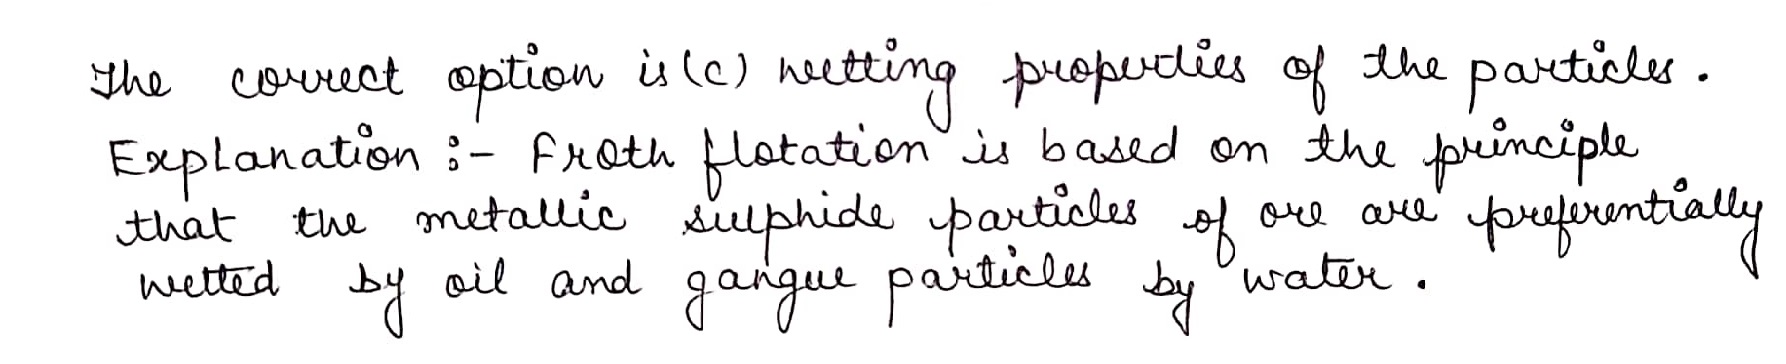 The correct option is (c) wetting properties of the particles.
Explanation :- Froth flotation is based on the principle
that the metallic sulphide particles of ore are preferentially
wetted by oil and gangue particles by water.